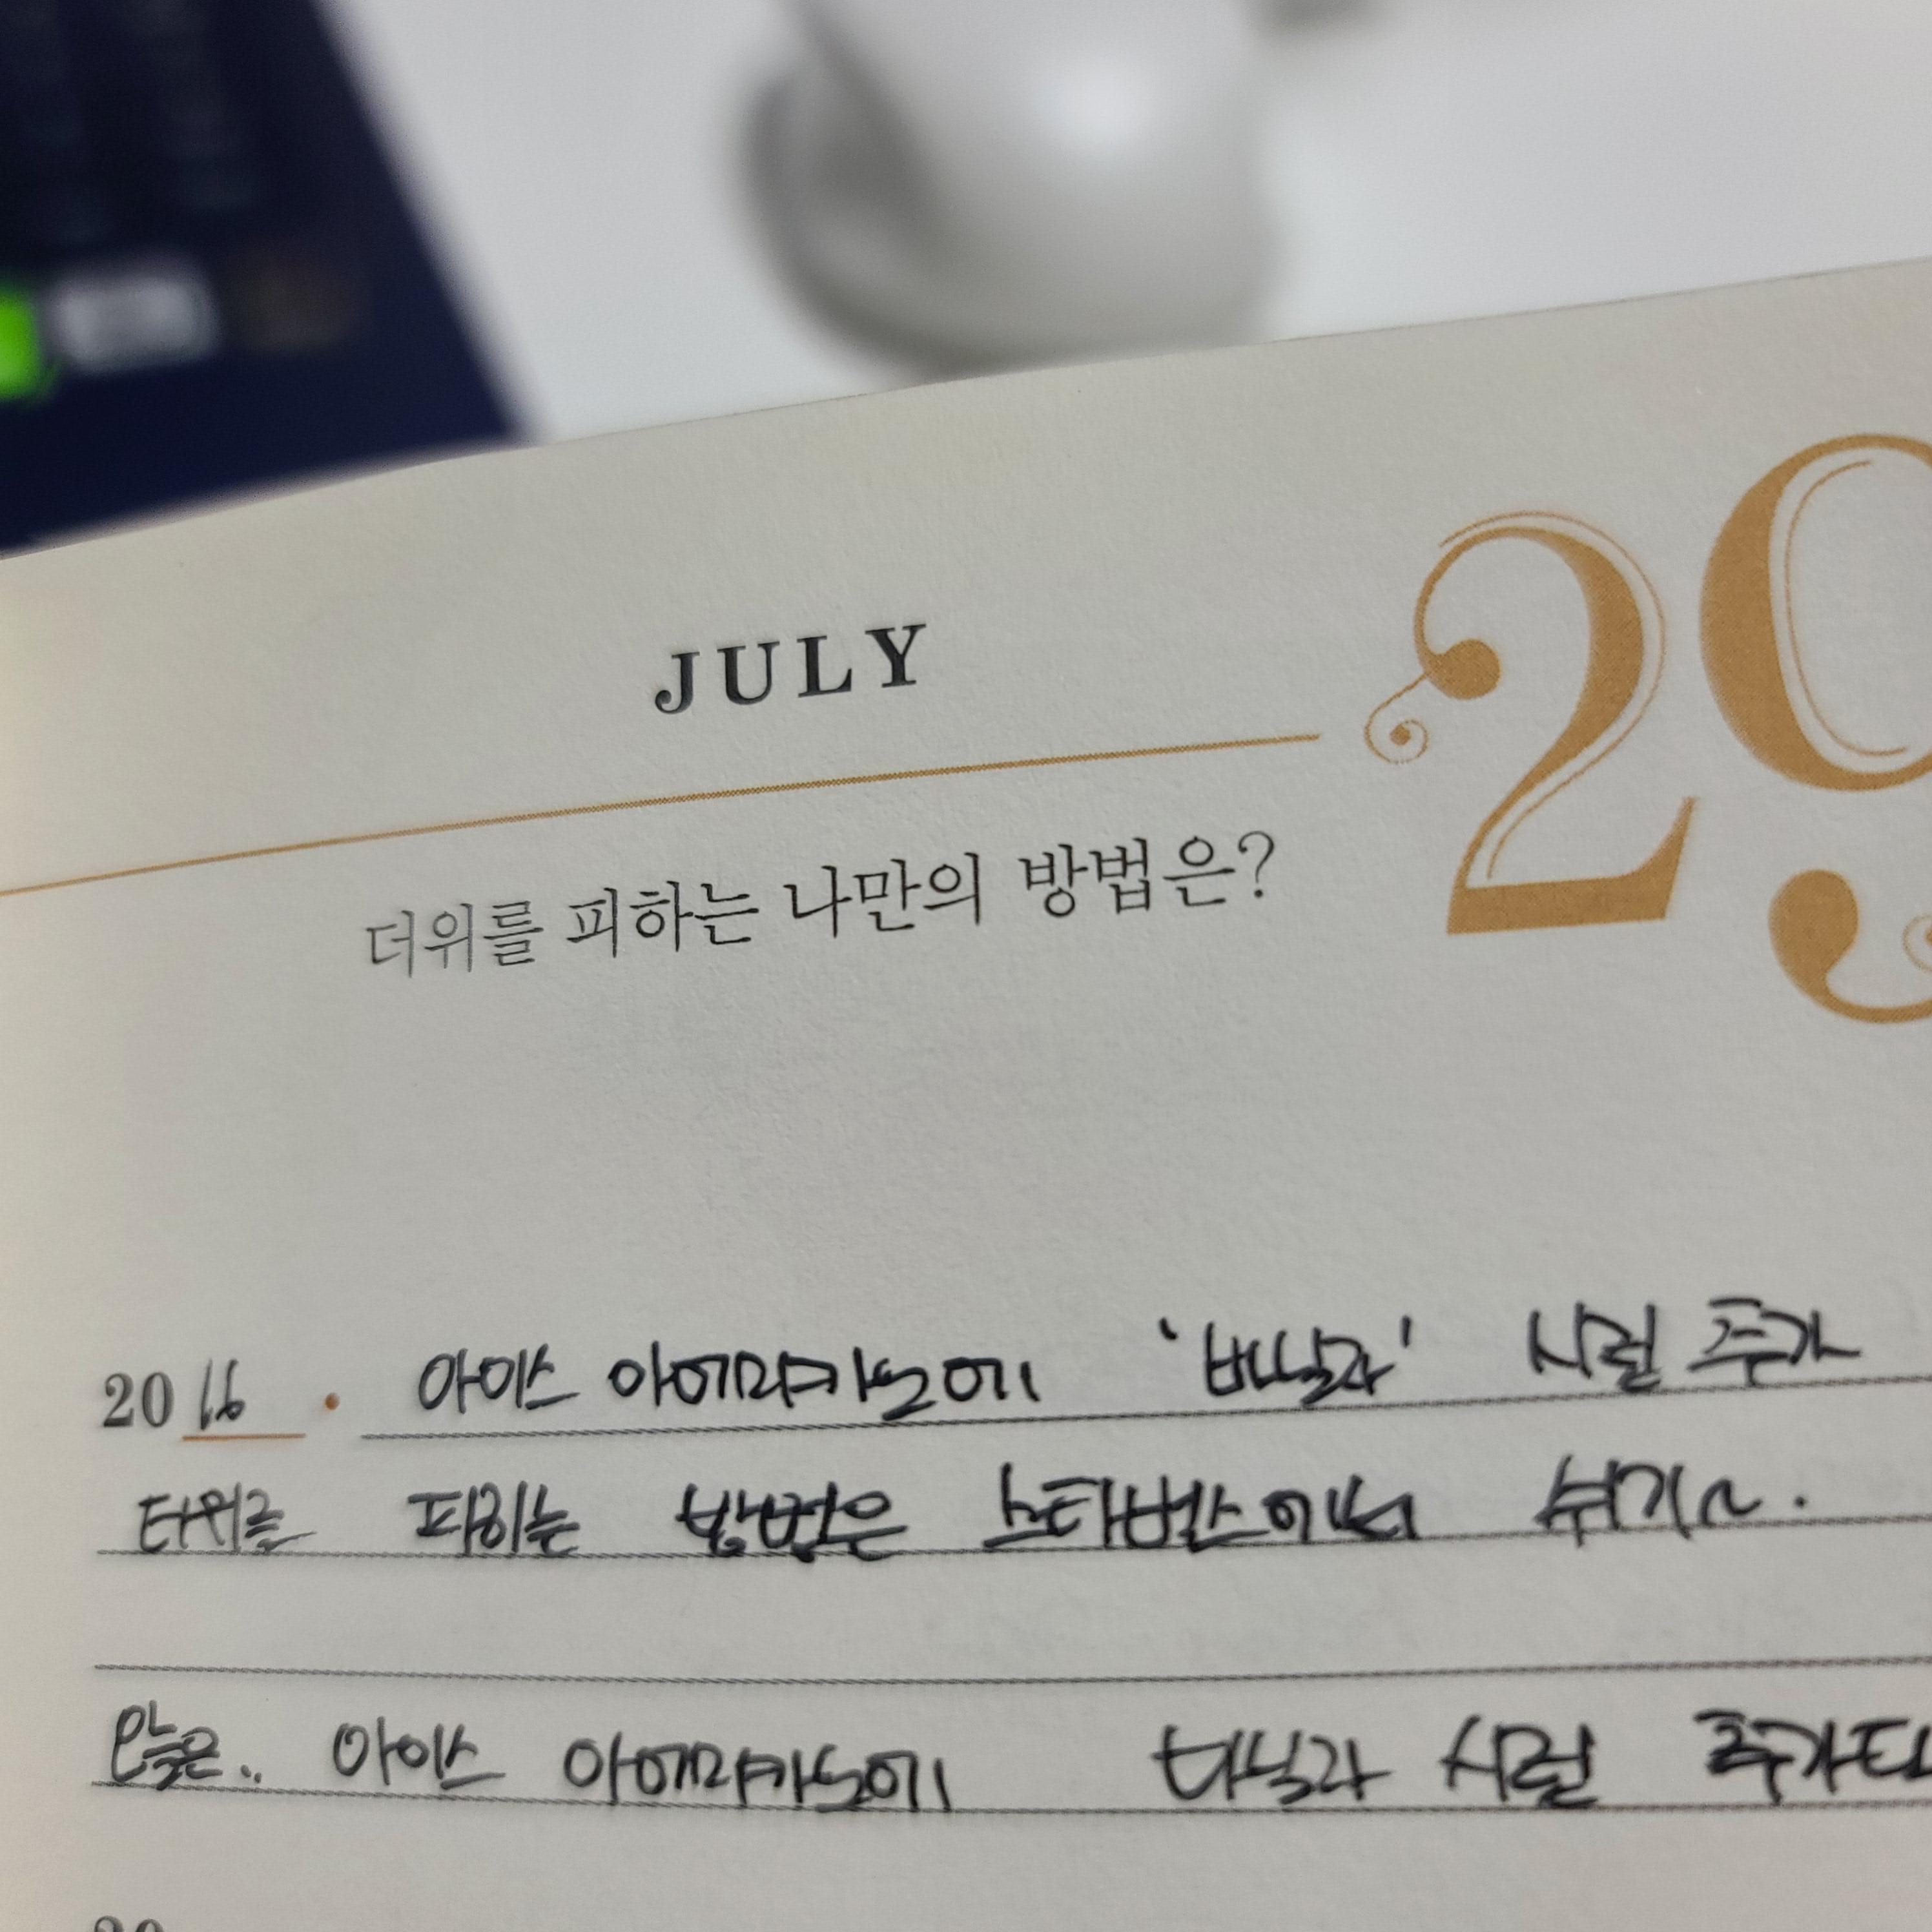 JULY
29
더위를 피하는 나만의 방법은?
2016 · 아이스 아메리카노에 '바닐라' 시럽 추가
더위를 피하는 방법은 스타벅스에서 쉬기~.
오늘은.. 아이스 아메리카노에 바닐라 시럽 추가다
20